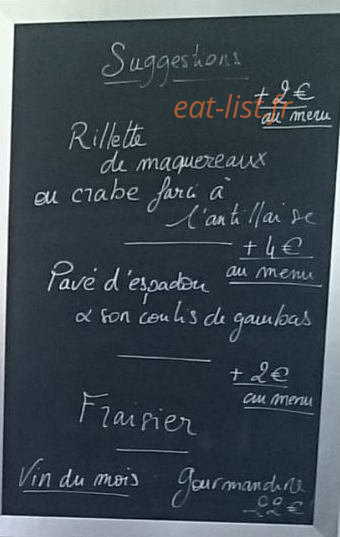 Suggestions
+ 2 €
au menu
eat-list.fr
Rillette
de maquereaux
ou crabe farci à
l'antillaise
+ 4 €
au menu
Pavé d'espadon
& son coulis de gambas
+ 2 €
au menu
Fraisier
Vin du mois gourmandise
22 €